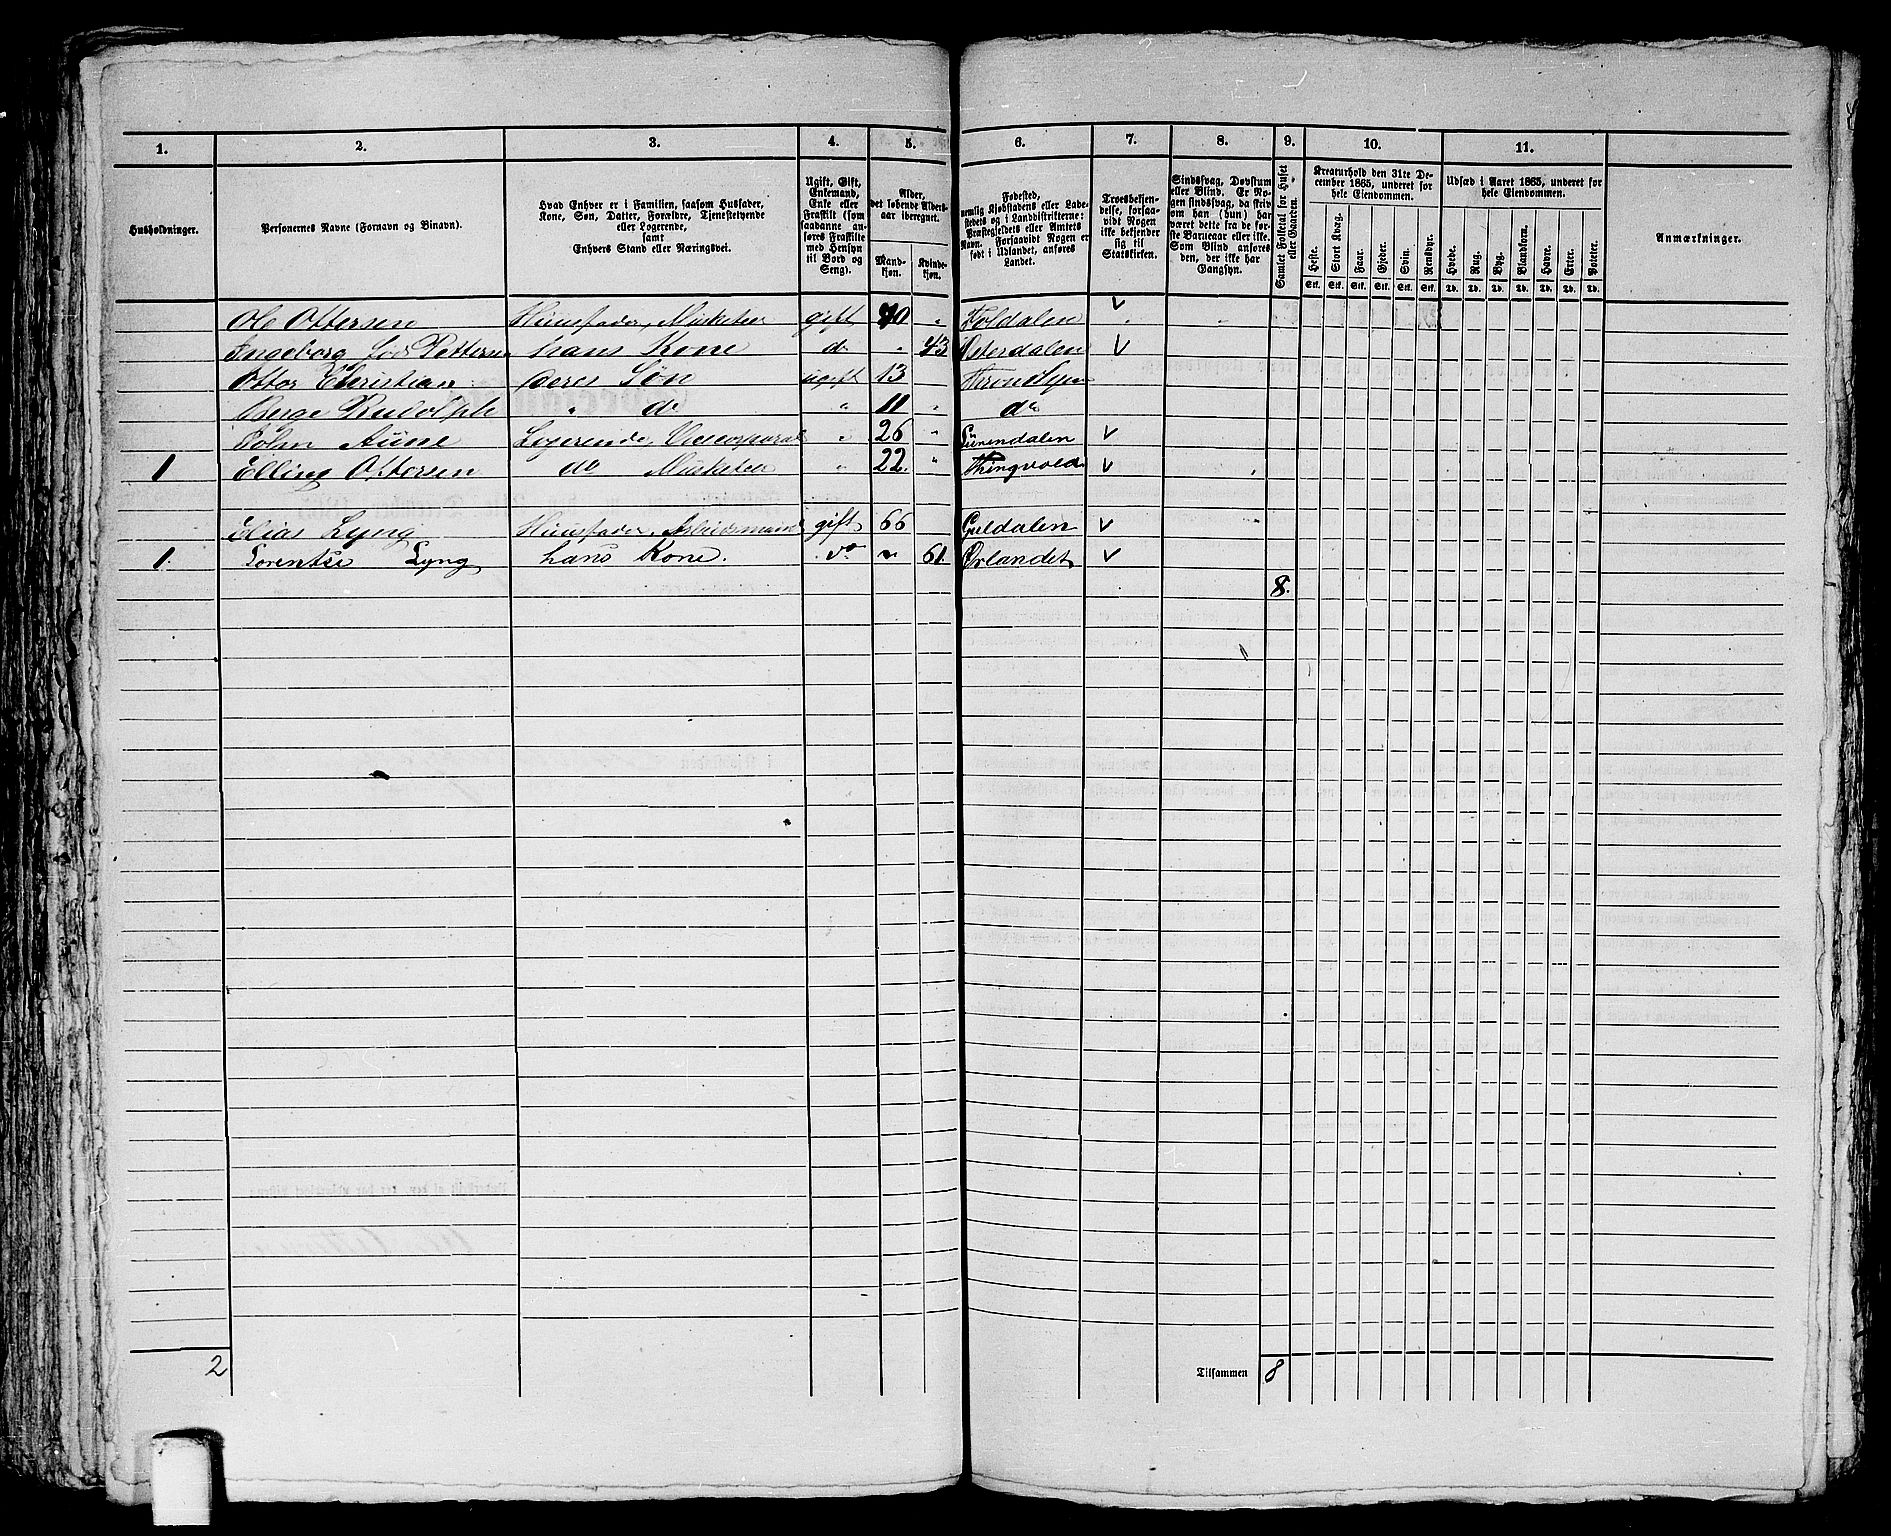 1. 2. 3. 4. 5. 6. 7. 8. 9. 10. 11.
Husholdninger.
Personernes Navne (Fornavn og Binavn).
Hvad Enhver er i Familien, saasom Husfader,
Kone, Søn, Datter, Forældre, Tjenestetyende
eller Logerende,
samt
Enhvers Stand eller Næringsvei.
Ugift, Gift,
Enkemand,
Enke eller
Fraskilt (som
saadanne an-
føres Fraskilte
med Hensyn
til Bord og
Seng).
Alder,
det løbende Alders-
aar iberegnet.
Mand-
kjøn.
Kvinde-
kjøn.
Fødested,
nemlig Kjøbstadens eller Lade-
stedets og i Landdistrikterne:
Præstegjeldets eller Amtets
Navn. Forsaavidt Nogen er
født i Udlandet, anføres
Landet.
Troesbekjen-
delse, forsaa-
vidt Nogen
ikke bekjender
sig til
Statskirken.
Sindssvag, Døvstum
eller Blind. Er No-
gen sindssvag, da skriv
om han (hun) har
været dette fra de før-
ste Barneaar eller ikke.
Som Blind anføres
den, der ikke har
Gangsyn.
Samlet Folketal for Huset
eller Gaarden.
Kreaturhold den 31te De-
cember 1865, underet for
hele Eiendommen.
Heste. Stort Kvæg. Faar. Gjeder. Svin. Rensdyr.
Stk. Stk. Stk. Stk. Stk. Stk.
Udsæd i Aaret 1865, underet for
hele Eiendommen.
Hvede. Rug. Byg. Blandkorn. Havre. Erter. Poteter.
Td. Td. Td. Td. Td. Td. Td.
Anmærkninger.
Ole Ottersen Huusfader, Musketeer gift 40 " Foldalen
Ingeborg fød Petterse hans Kone do " 43 Østerdalen
Ottor Christian deres Søn ugift 13 Throndhjem
Berge Rudolph " do " 11 " do
John Aune Logerende, Vicecorporal " 26 " Sürendalen
1 Elling Ottersen do Musketeer " 22. " Thingvold
Elias Lyng Huusfader, Arbeidsmand gift 66 Guldalen
1. Lorentse Lyng hans Kone. do " 61. Ørlandet
8.
2 Tilsammen 8